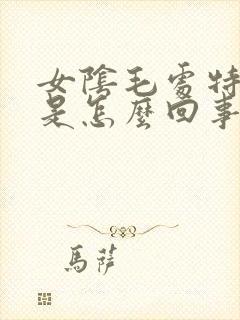 女陰毛處特
是怎麼回事
馬薩